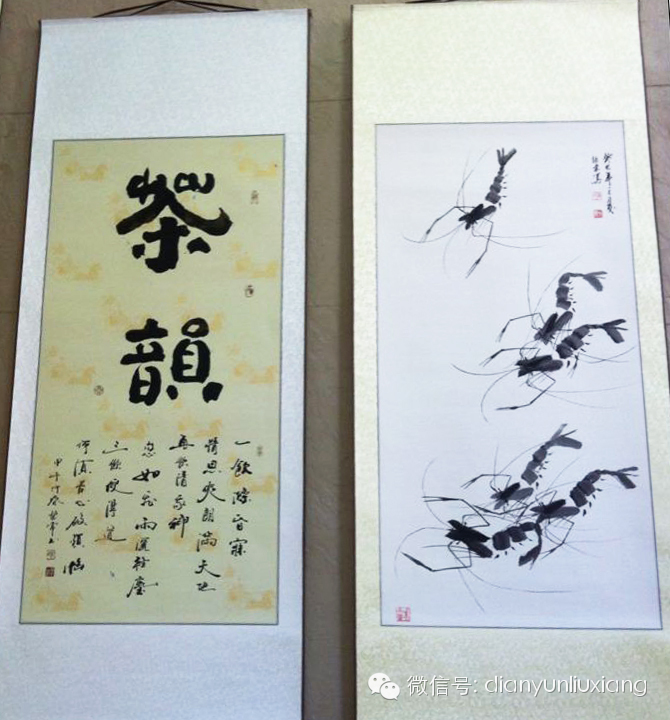 茶
韻
一飲滌昏寐
情思爽朗滿天地
再飲清我神
忽如飛雨灑輕塵
三飲便得道
何須苦心破煩惱
甲午
癸巳年
微信号: dianyunliuxiang